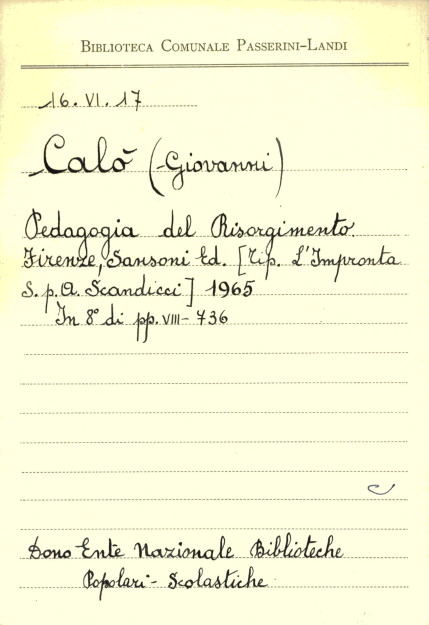 BIBLIOTECA COMUNALE PASSERINI-LANDI
16. VI. 17
Calò (Giovanni)
Pedagogia del Risorgimento.
Firenze, Sansoni Ed. [Tip. L'Impronta
S.p.A. Scandicci] 1965
In 8° di pp. VIII - 736
Dono Ente Nazionale Biblioteche
Popolari - Scolastiche